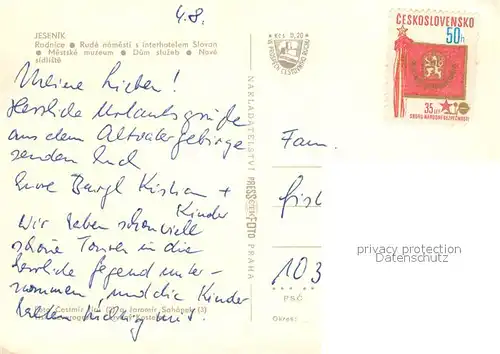 4.8.
JESENÍK
Radnice ● Rudé náměstí s interhotelem Slovan
● Městské muzeum ● Dům služeb ● Nové
sídliště
Meine Lieben!
Herzliche Urlaubsgrüße
aus dem Altvatergebirge
senden Euch
Eure Burgl +
Kinder
Wir haben schon viel
schöne Touren in die
herrliche Gegend unter-
nommen, und die Kinder
halten richtig mit.
Foto: Čestmír Jaromír (3)
NAKLADATELSTVÍ PRESSFOTO PRAHA
Kčs 0,20
ČESKOSLOVENSKO
50h
35 LET
Fam.
103
PSČ
Okres:
privacy protection
Datenschutz